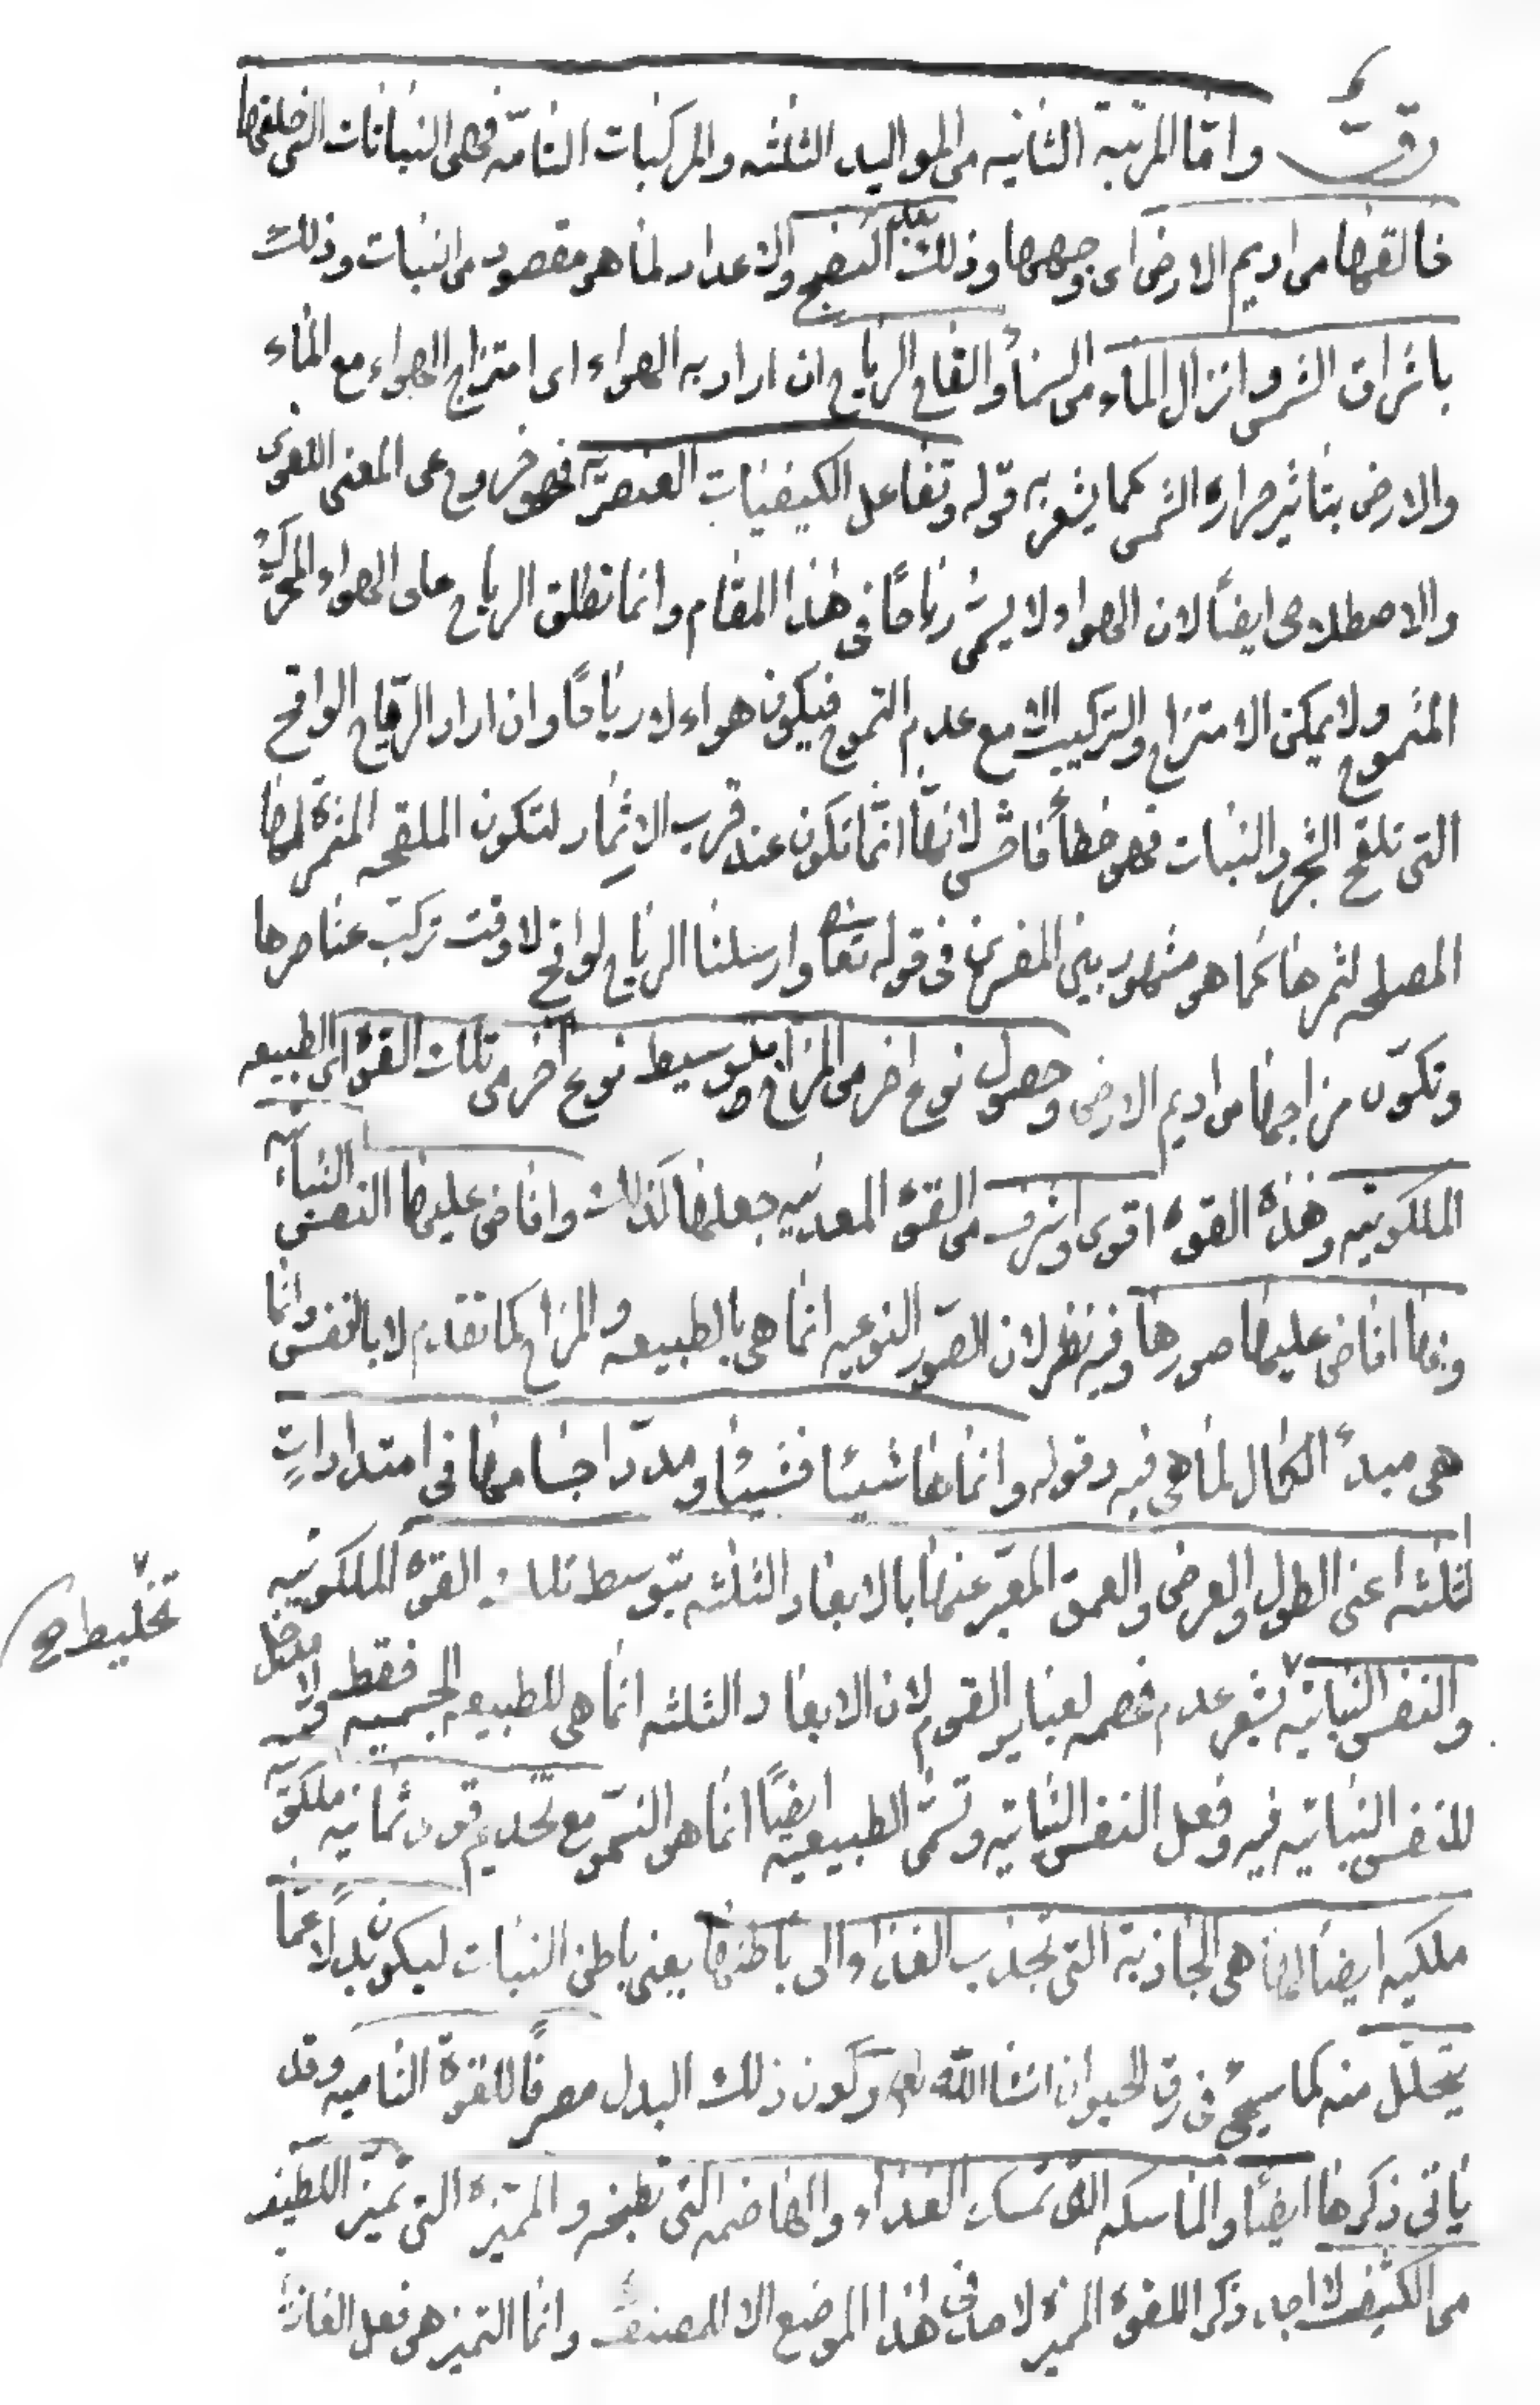 رقٓ واما المرتبة الثانيه من المواليد الثلثه والمركبات التامّه فهى النباتات التى خلقها
خالقها من اديم الارض اى وجهها وذلك بعد النضج والاعداد لما هو مقصود من النبات وذلك
باشراق الشمس وانزال الماء من السماء والقاح الرياح ان اراد به الهواء اى امتزاج الهواء مع الماء
والارض بتاثير حرارة الشمس كما يشعر به قوله وتفاعل الكيفيات العنصريّة فهو خروج عن المعنى اللغوى
والاصطلاحى ايضاً لان الهواء لا يسمى رياحًا فى هذا المقام وانما تطلق الرياح على الهواء المتحرك
المتموج ولا يمكن الامتزاج والتركيب الا مع عدم التموج فيكون هواء لا رياحًا وان اراد الرياح الواقح
التى تلقح الشجر والنبات فهو خطأ فاحش لانها انّما تكون عند قرب الاثمار لتكون الملقحه المثمرة لها
المصلحه لثمرها كما هو مشهور بين المفسرين فى قوله تعا وارسلنا الرياح لواقح لا وقت تركب عناصرها
وتكوّن مزاجها من اديم الارض وحصول نوع اخر من المزاج بتوسيط نوع اخر من تلك القوة اى الطبيعه
الملكوتيه وهذه القوة اقوى واشرف من القوة المعدنيه جعلها كذلك وافاض عليها النفس النباتيه
وبها افاض عليها صورها وفيه نظر لان الصّور النوعيه انما هى بالطبيعه والمزاج كما تقدم لا بالنفس وانما
هى مبدء الكمال لما هى فيه وقوله وانماها شيئا فشيئا ومدد اجسامها فى امتداداتٍ
لثلثه اعنى الطول والعرض والعمق المعبّر عنها بالابعاد الثلثه بتوسط تلك القوة الملكوتيه
والنفس النباتيّه يشعر عدم فهمه لعباير القوم لان الابعاد الثلثه انما هى للطبيعه الجسميه فقط ولا مدخل
للنفس النباتيه فيه وفعل النفس النباتيه وتسمّى الطبيعيه ايضًا انما هو النموّ مع تقديم قوى ثمانيه ملكوتيّه
ملكيه ايضا لها هى الجاذبة التى تجذب الغذاء الى باطنها يعنى باطن النبات ليكون بدلًا عمّا
يتحلّل منه كما سيجئ فى رق الحيوان انشا الله تعا وكون ذلك البدل مصرفًا للقوة الناميه وقد
ياتى ذكرها ايضا والماسكه التى تمسك الغذاء والهاضمه التى تطبخه والمميّزة التى تميّز اللطيف
من الكثيف ذكر للقوة المميزة فى هذا الموضع الا للمصنف وانما التميز هو فعل
تخليط